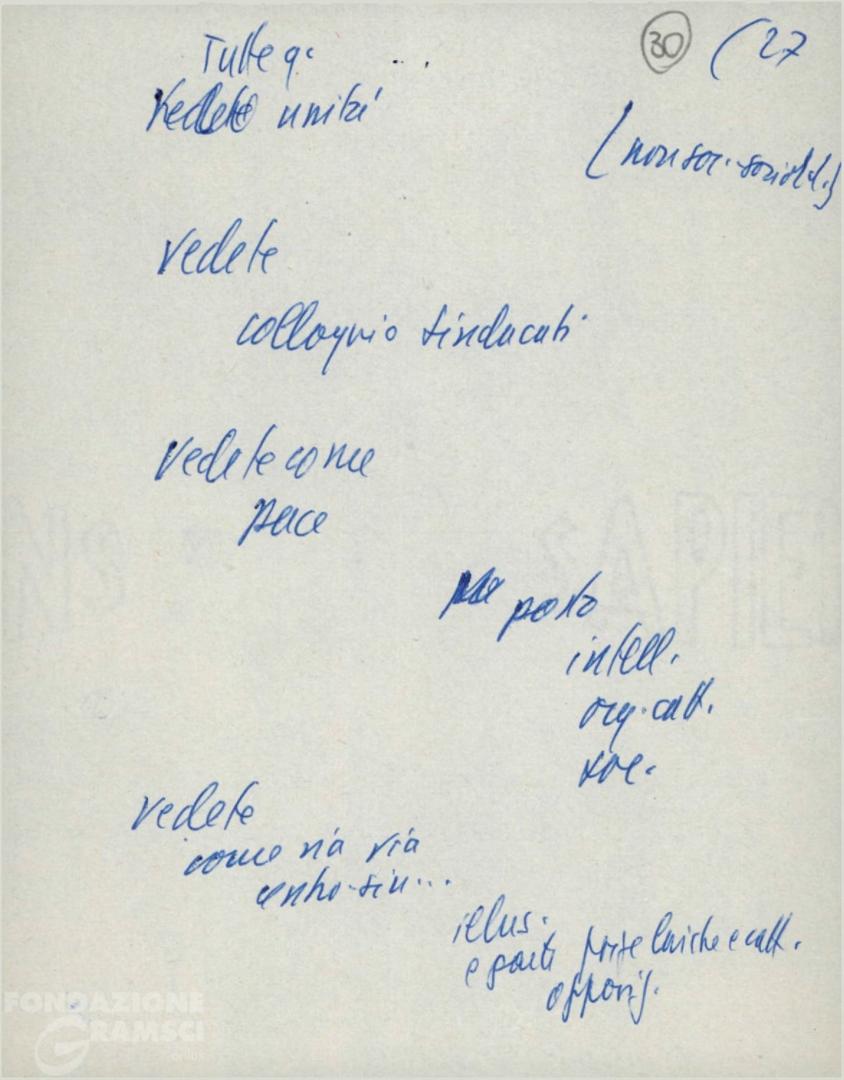 Tutte q.
30 (27
Vedete unità
(non soc.
vedete
colloquio sindacati
vedete come
pace
posto
intell.
org. catt.
soc.
vedete
come via via
centro-sin...
illus.
e forze laiche e catt.
FONDAZIONE
GRAMSCI